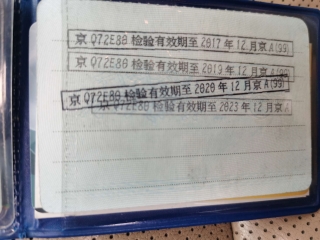 京 Q72E80 检验有效期至 2017 年 12 月京 A(99)
京 Q72E80 检验有效期至 2019 年 12 月京 A(99)
京 Q72E80 检验有效期至 2020 年 12 月京 A(99)
京 Q72E80 检验有效期至 2023 年 12 月京 A